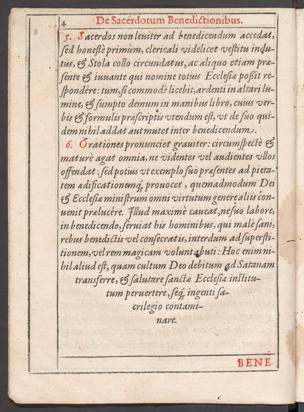 4
De Sacerdotum Benedictionibus.
5. Sacerdos non leuiter ad benedicendum accedat,
sed honestè primùm, clericali videlicet vestitu indu-
tus, & Stola collo circundatus, ac aliquo etiam præ-
sente & iuuante qui nomine totius Ecclesiæ possit re-
spondere: tum, si commodè licebit, ardenti in altari lu-
mine, & sumpto demum in manibus libro, cuius ver-
bis & formulis præscriptis vtendum est, vt de suo qui-
dem nihil addat aut mutet inter benedicendum.
6. Orationes pronunciet grauiter: circumspectè &
maturè agat omnia, ne videntes vel audientes vllos
offendat: sed potius vt exemplo suo præsentes ad pieta-
tem ædificationemq́; prouocet, quemadmodum Dei
& Ecclesiæ ministrum omni virtutum genere aliis con-
uenit prælucere. Illud maximè caueat, ne suo labore,
in benedicendo, seruiat his hominibus, qui malè sani,
rebus benedictis vel consecratis, interdum ad supersti-
tionem, vel rem magicam volunt abuti: Hoc enim ni-
hil aliud est, quam cultum Deo debitum ad Satanam
transferre, & salutare sanctæ Ecclesiæ institu-
tum peruertere, seq́; ingenti sa-
crilegio contami-
nare.
BENE